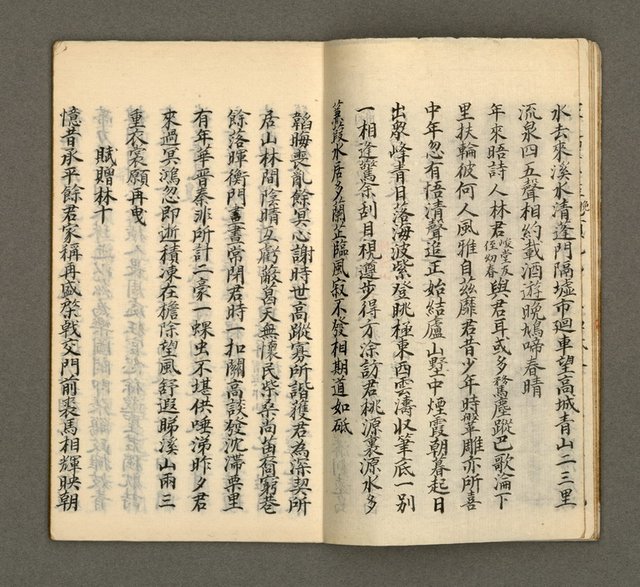 水去來溪水清逢門隔墟市迴車望高城青山二三里
流泉四五聲相約載酒遊晚鳩啼春晴
年來晤詩人林君峻堂友侄幼春與君耳或多務塵蹤巴歌淪下
里扶輪彼何人風雅自茲靡君昔少年時輩雕亦所喜
中年忽有悟清聲追正始結廬山墅中煙霞朝暮起日
出眾峰青日落海波紫登眺極東西雲濤收筆底一別
一相逢驚余刮目視遵步得方塗訪君桃源裏源水多
蒹葭水居多蘭芷臨風寂不發相期道如砥
韜晦喪亂餘冥心謝時世高蹤寡所諧獲君為深契所
居山林間陰晴互虧蔽葛天無懷民柴桑尚苗裔窮巷
餘落暉衡門書晝常閉君時一扣關高談發沈滯粟里
有年華晉秦非所計二豪一蜾虫不堪供唾涕昨夕君
來過冥鴻忽即逝積凍在檐除望風舒遐睇溪山雨三
重衣裳願再曳
賦贈林十
憶昔承平餘君家稱再盛棨戟交門前裘馬相輝映朝